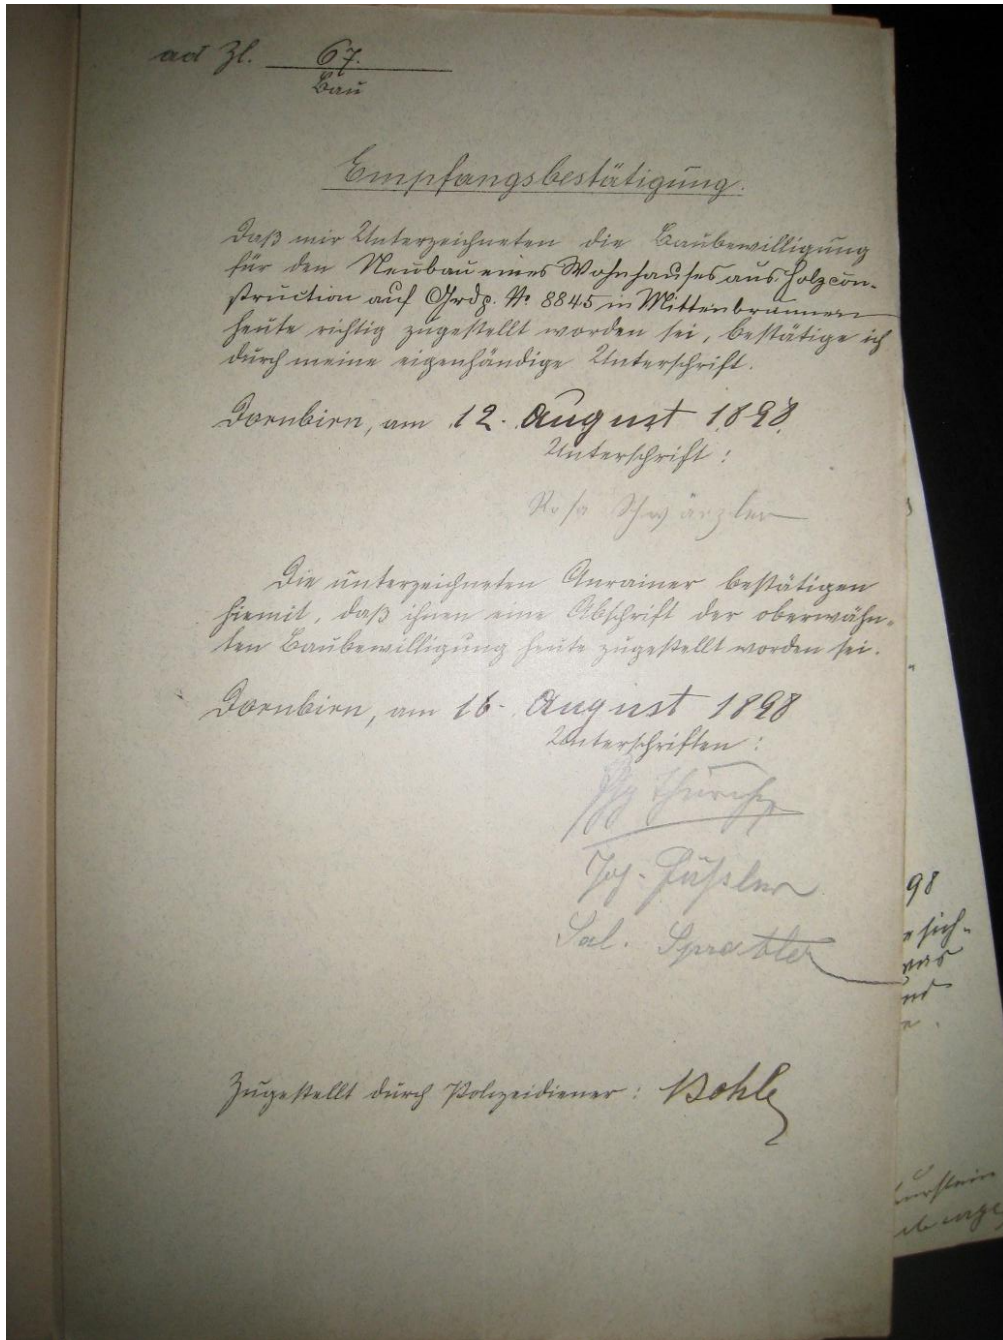 ad Zl. 67.
Bau
Empfangsbestätigung.
Daß mir Unterzeichneten die Baubewilligung
für den Neubau eines Wohnhauses aus Holzcon-
struction auf Grdp. No 8845 in Mittenbrunnen
heute richtig zugestellt worden sei, bestätige ich
durch meine eigenhändige Unterschrift.
Dornbirn, am 12. August 1898.
Unterschrift:
Rosa Schwärzler
Die unterzeichneten Anrainer bestätigen
hiemit, daß ihnen eine Abschrift der oberwähn-
ten Baubewilligung heute zugestellt worden sei.
Dornbirn, am 16. August 1898
Unterschriften:
Jos.
Sal.
Zugestellt durch Polizeidiener: Bohle
98
sich-
was
und